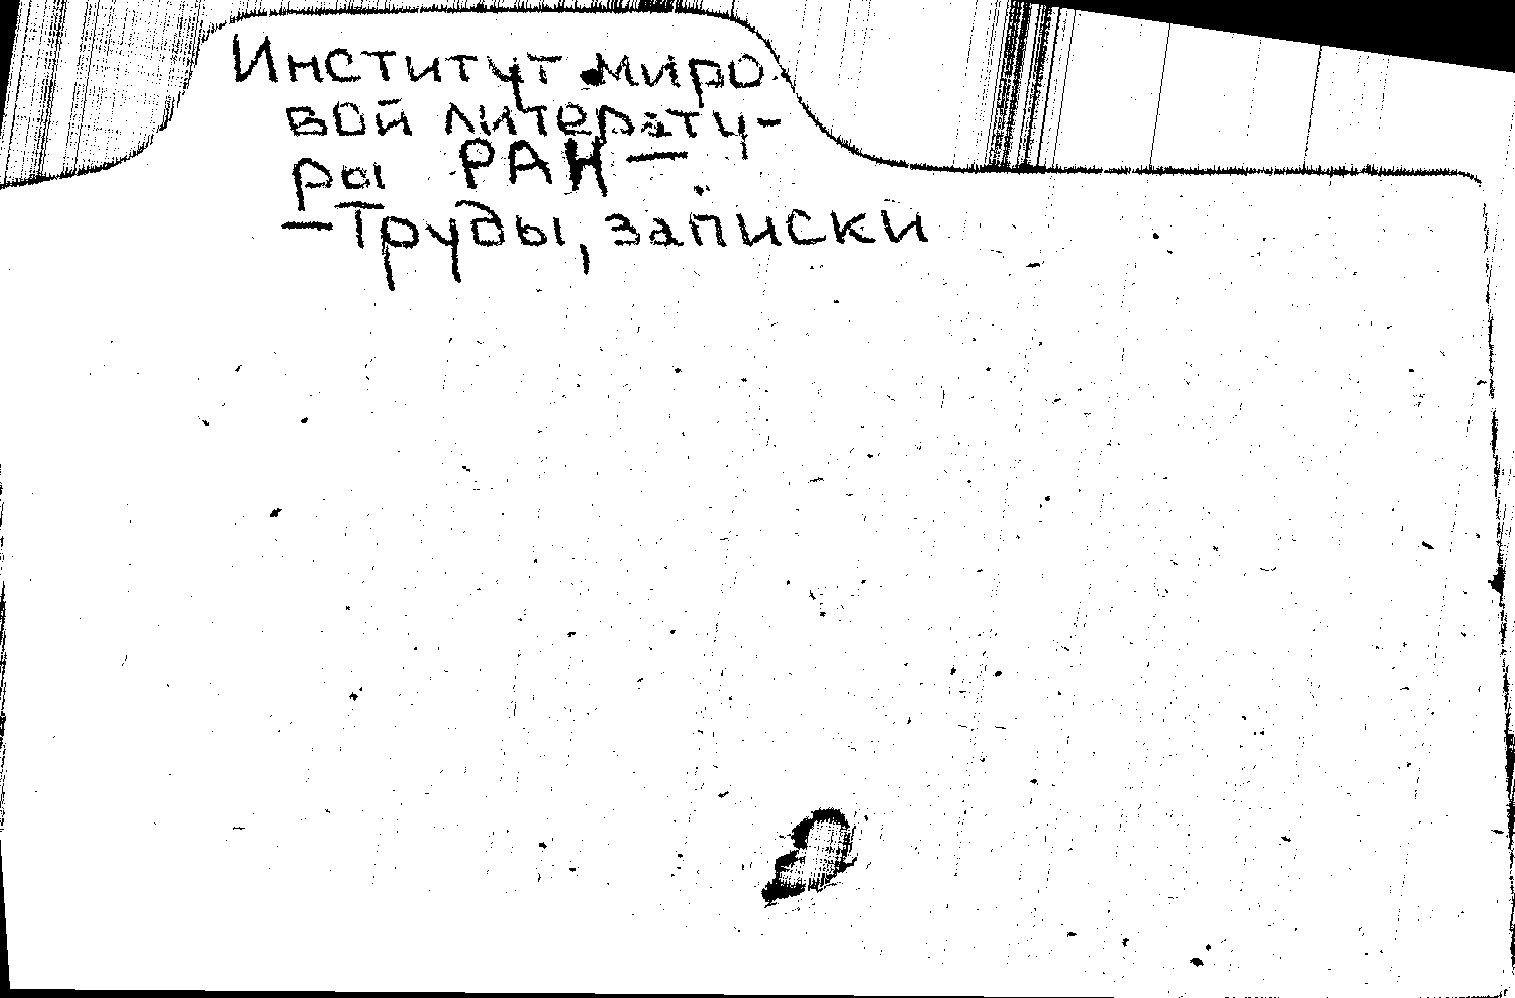 Институт миро-
вой литерату-
ры РАН —
— Труды, записки